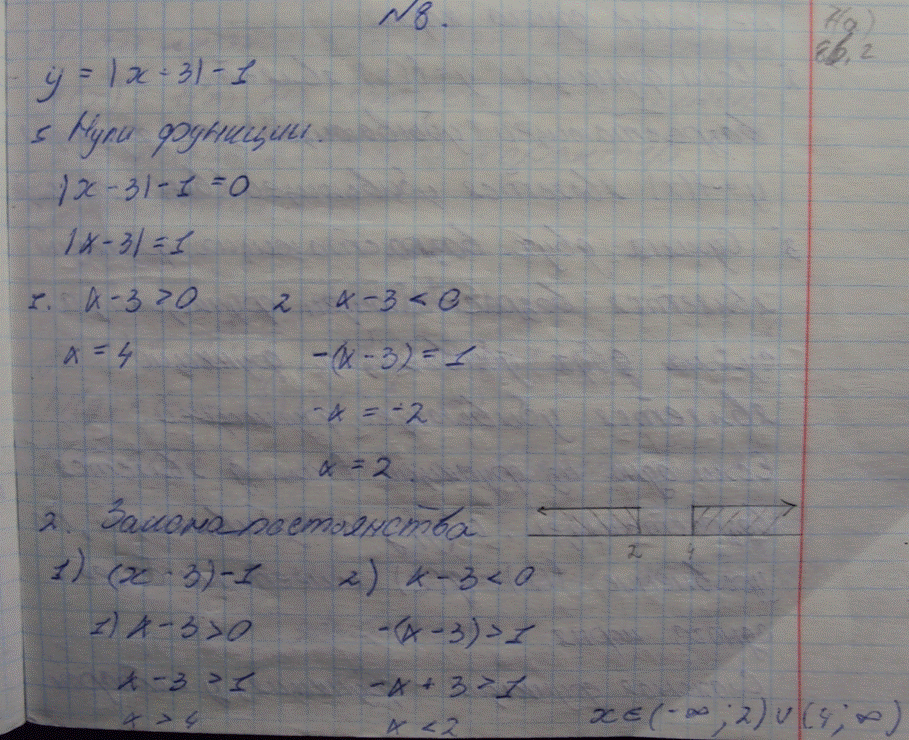 №8.
y = |x - 3| - 1
Нули функции.
|x - 3| - 1 = 0
|x - 3| = 1
1. x - 3 > 0 2 x - 3 < 0
x = 4 -(x - 3) = 1
-x = -2
x = 2
2.
2 4
1) (x - 3) - 1 2) x - 3 < 0
1) x - 3 > 0 -(x - 3) > 1
x - 3 > 1 -x + 3 > 1
x > 4 x < 2 x ∈ (-∞ ; 2) ∪ (4 ; ∞)